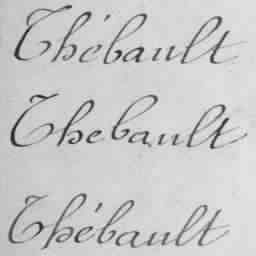 Thébault
Thebault
Thébault